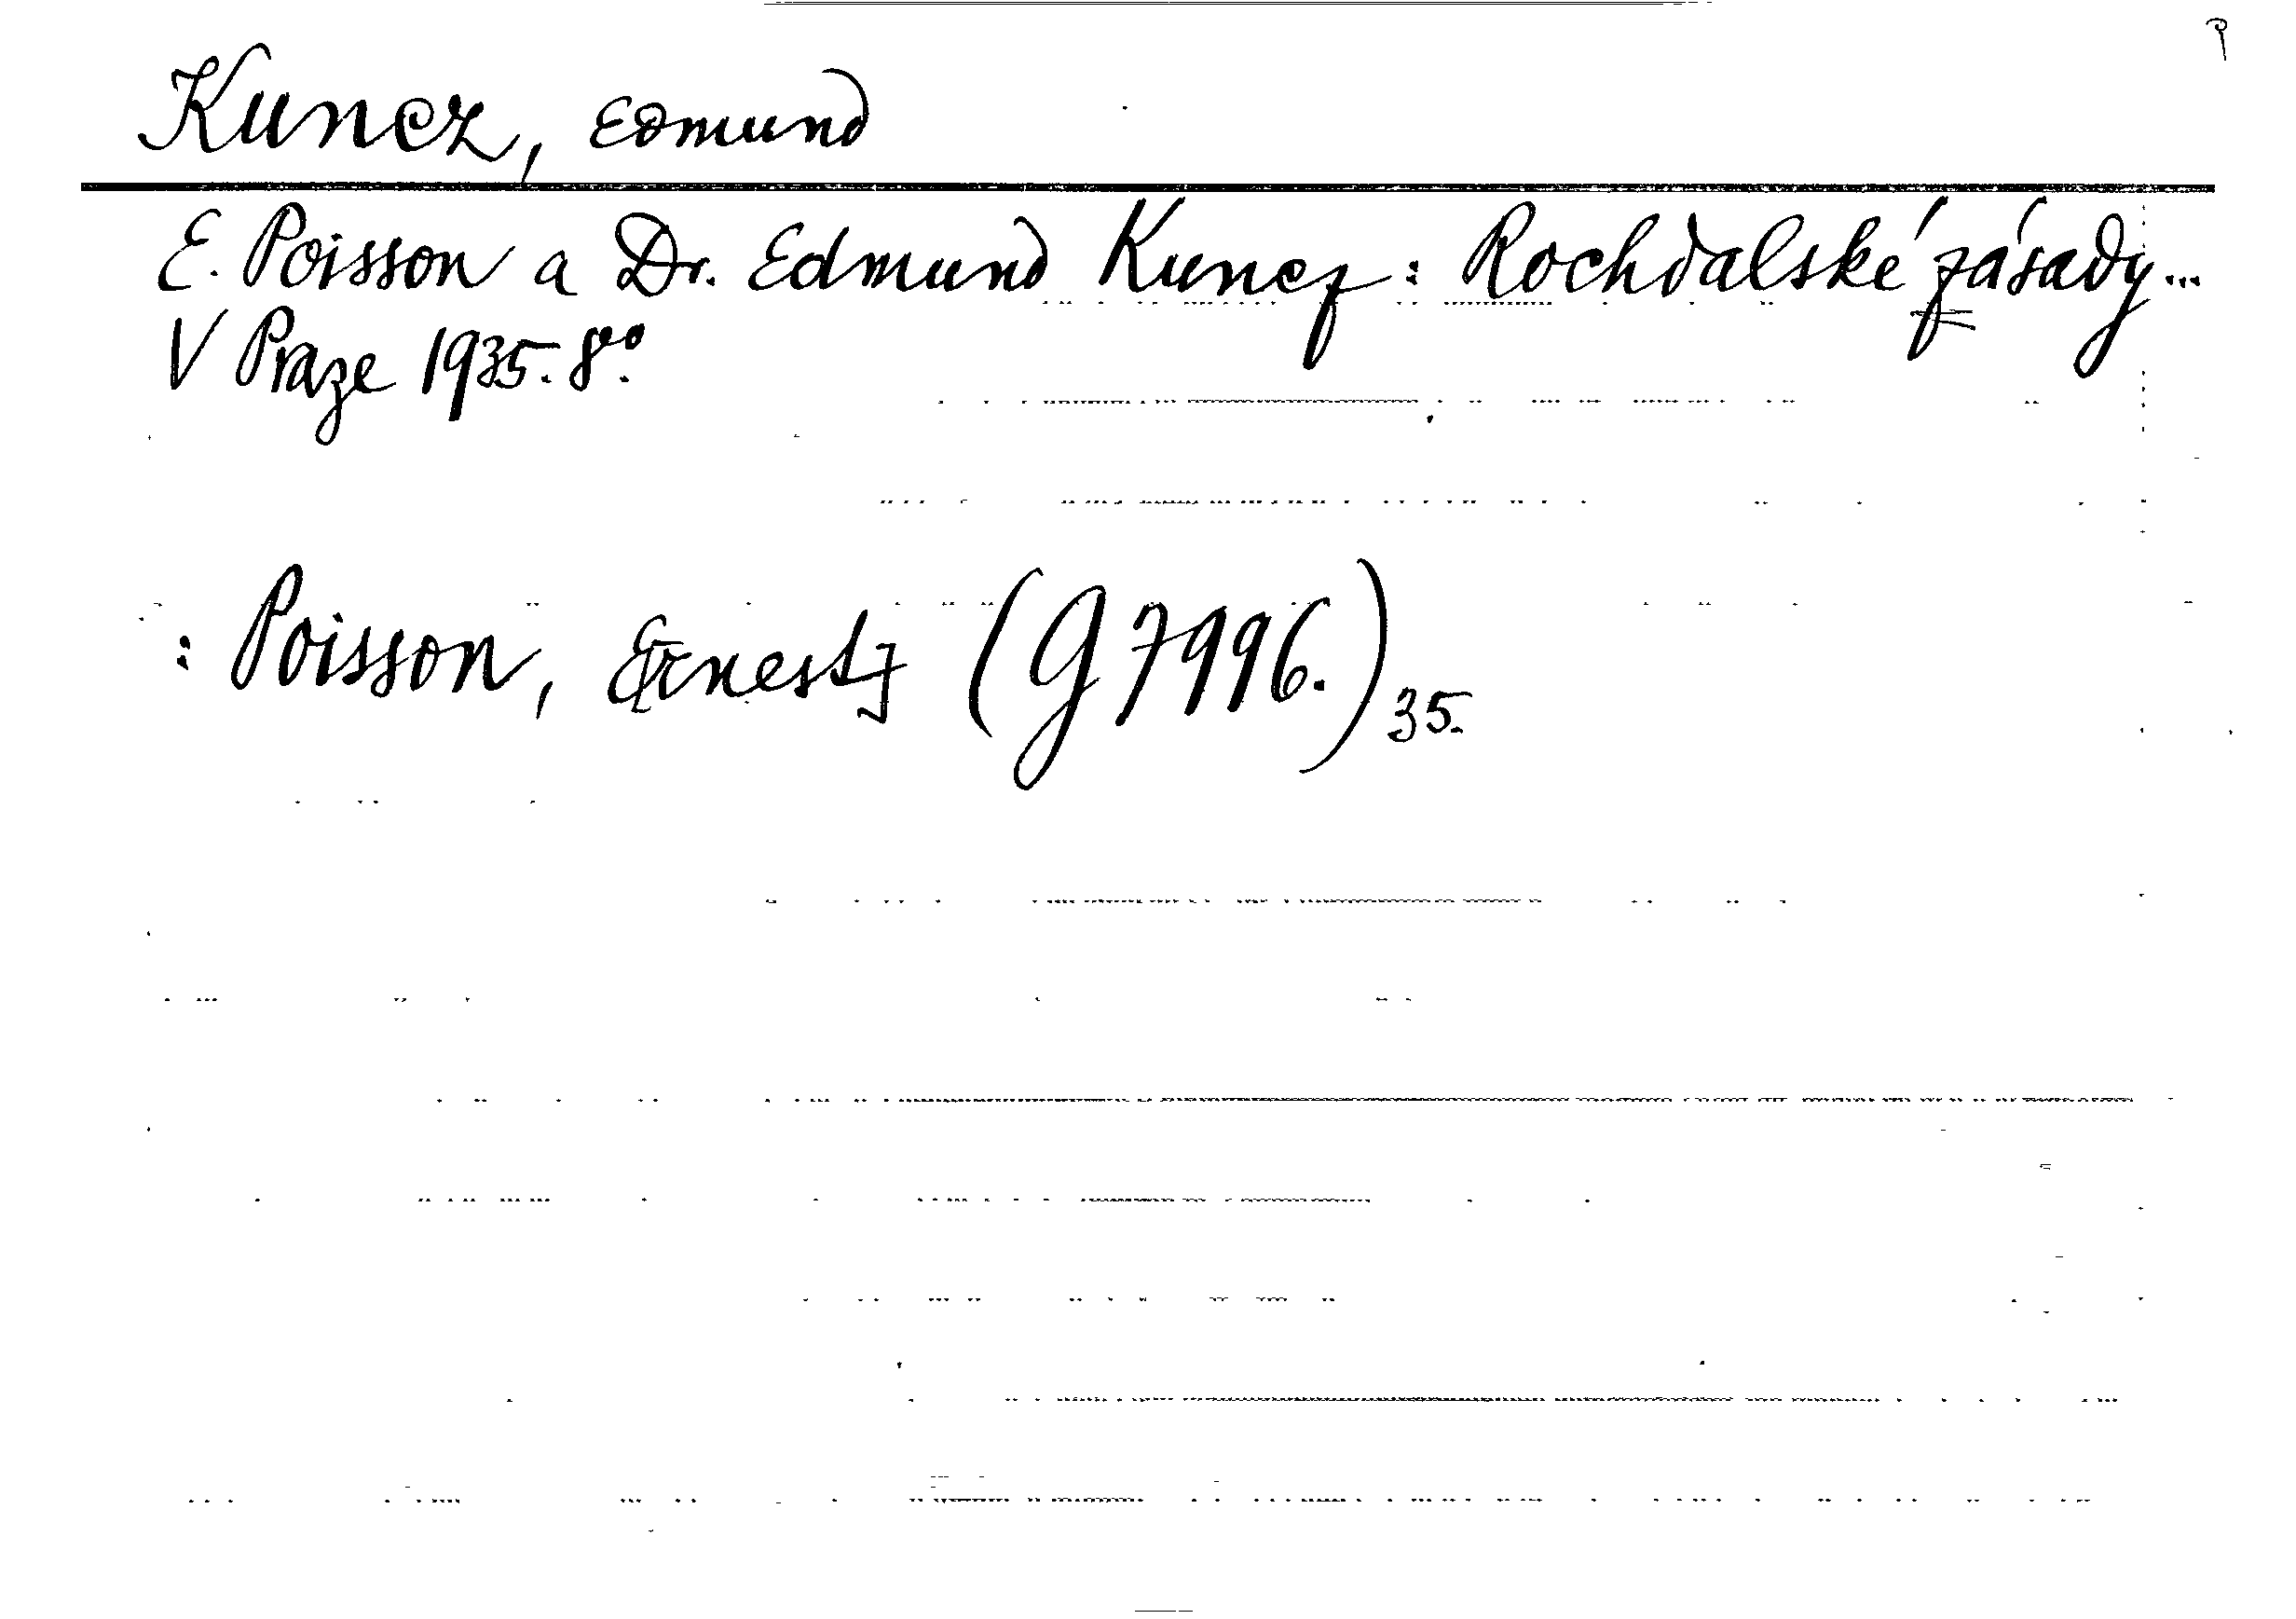 Kuncz, Edmund
E. Poisson a Dr. Edmund Kuncz: Rochdalské zásady...
V Praze 1935. 8°.
: Poisson, Ernest] (G 7996.) 35.